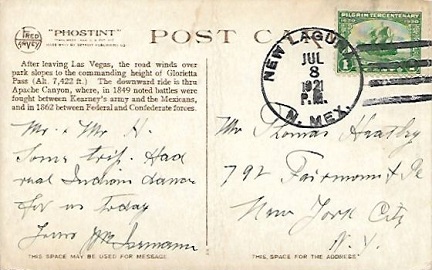 FRED HARVEY
"PHOSTINT"
POST CARD
After leaving Las Vegas, the road winds over
park slopes to the commanding height of Glorietta
Pass (Alt. 7,422 ft.) The downward ride is thru
Apache Canyon, where, in 1849 noted battles were
fought between Kearney's army and the Mexicans,
and in 1862 between Federal and Confederate forces.
NEW LAGUNA
JUL
8
1921
P.M.
N. MEX.
PILGRIM TERCENTENARY
1620 1920
1
Mr. & Mrs H.
Some trip. Had
real Indian dance
for us today
Yours
Mr Thomas
792 Fairmount
New York City
N.Y.
THIS SPACE MAY BE USED FOR MESSAGE
THIS SPACE FOR THE ADDRESS